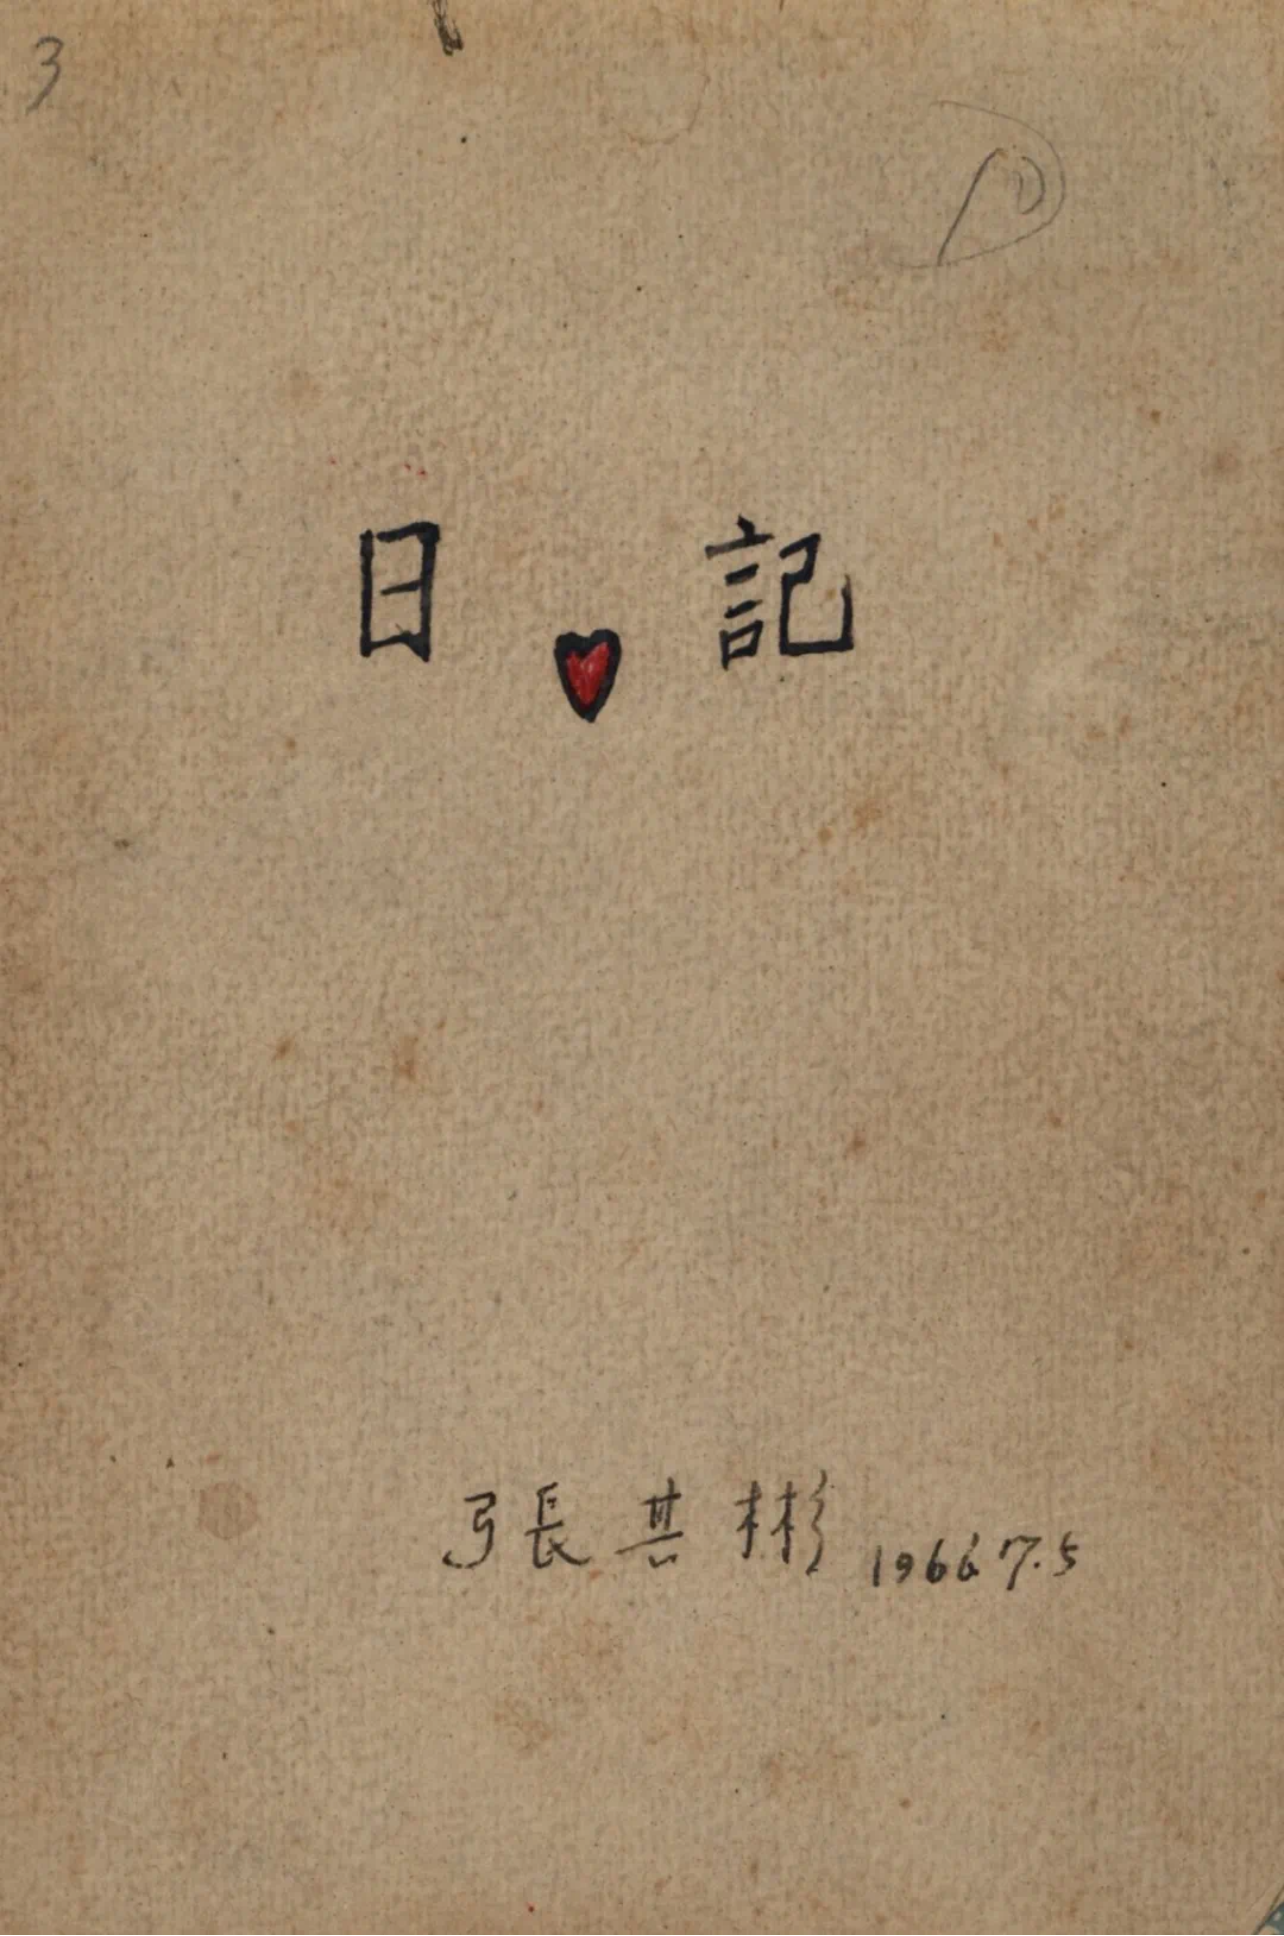 3
日 記
張共彬 1966 7.5